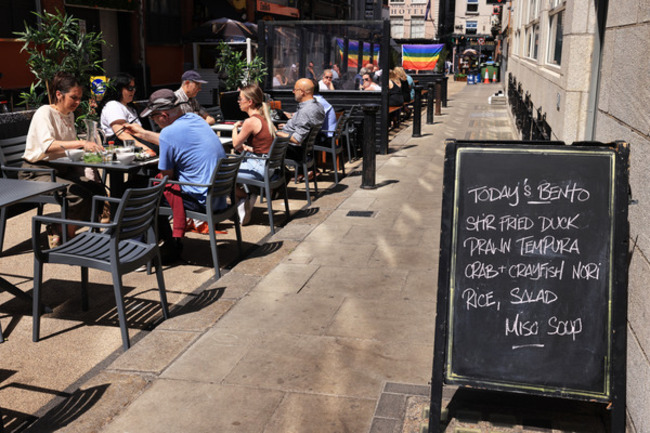 HOTEL
TODAY'S BENTO
STIR FRIED DUCK
PRAWN TEMPURA
CRAB + CRAYFISH NORI
RICE, SALAD
MISO SOUP